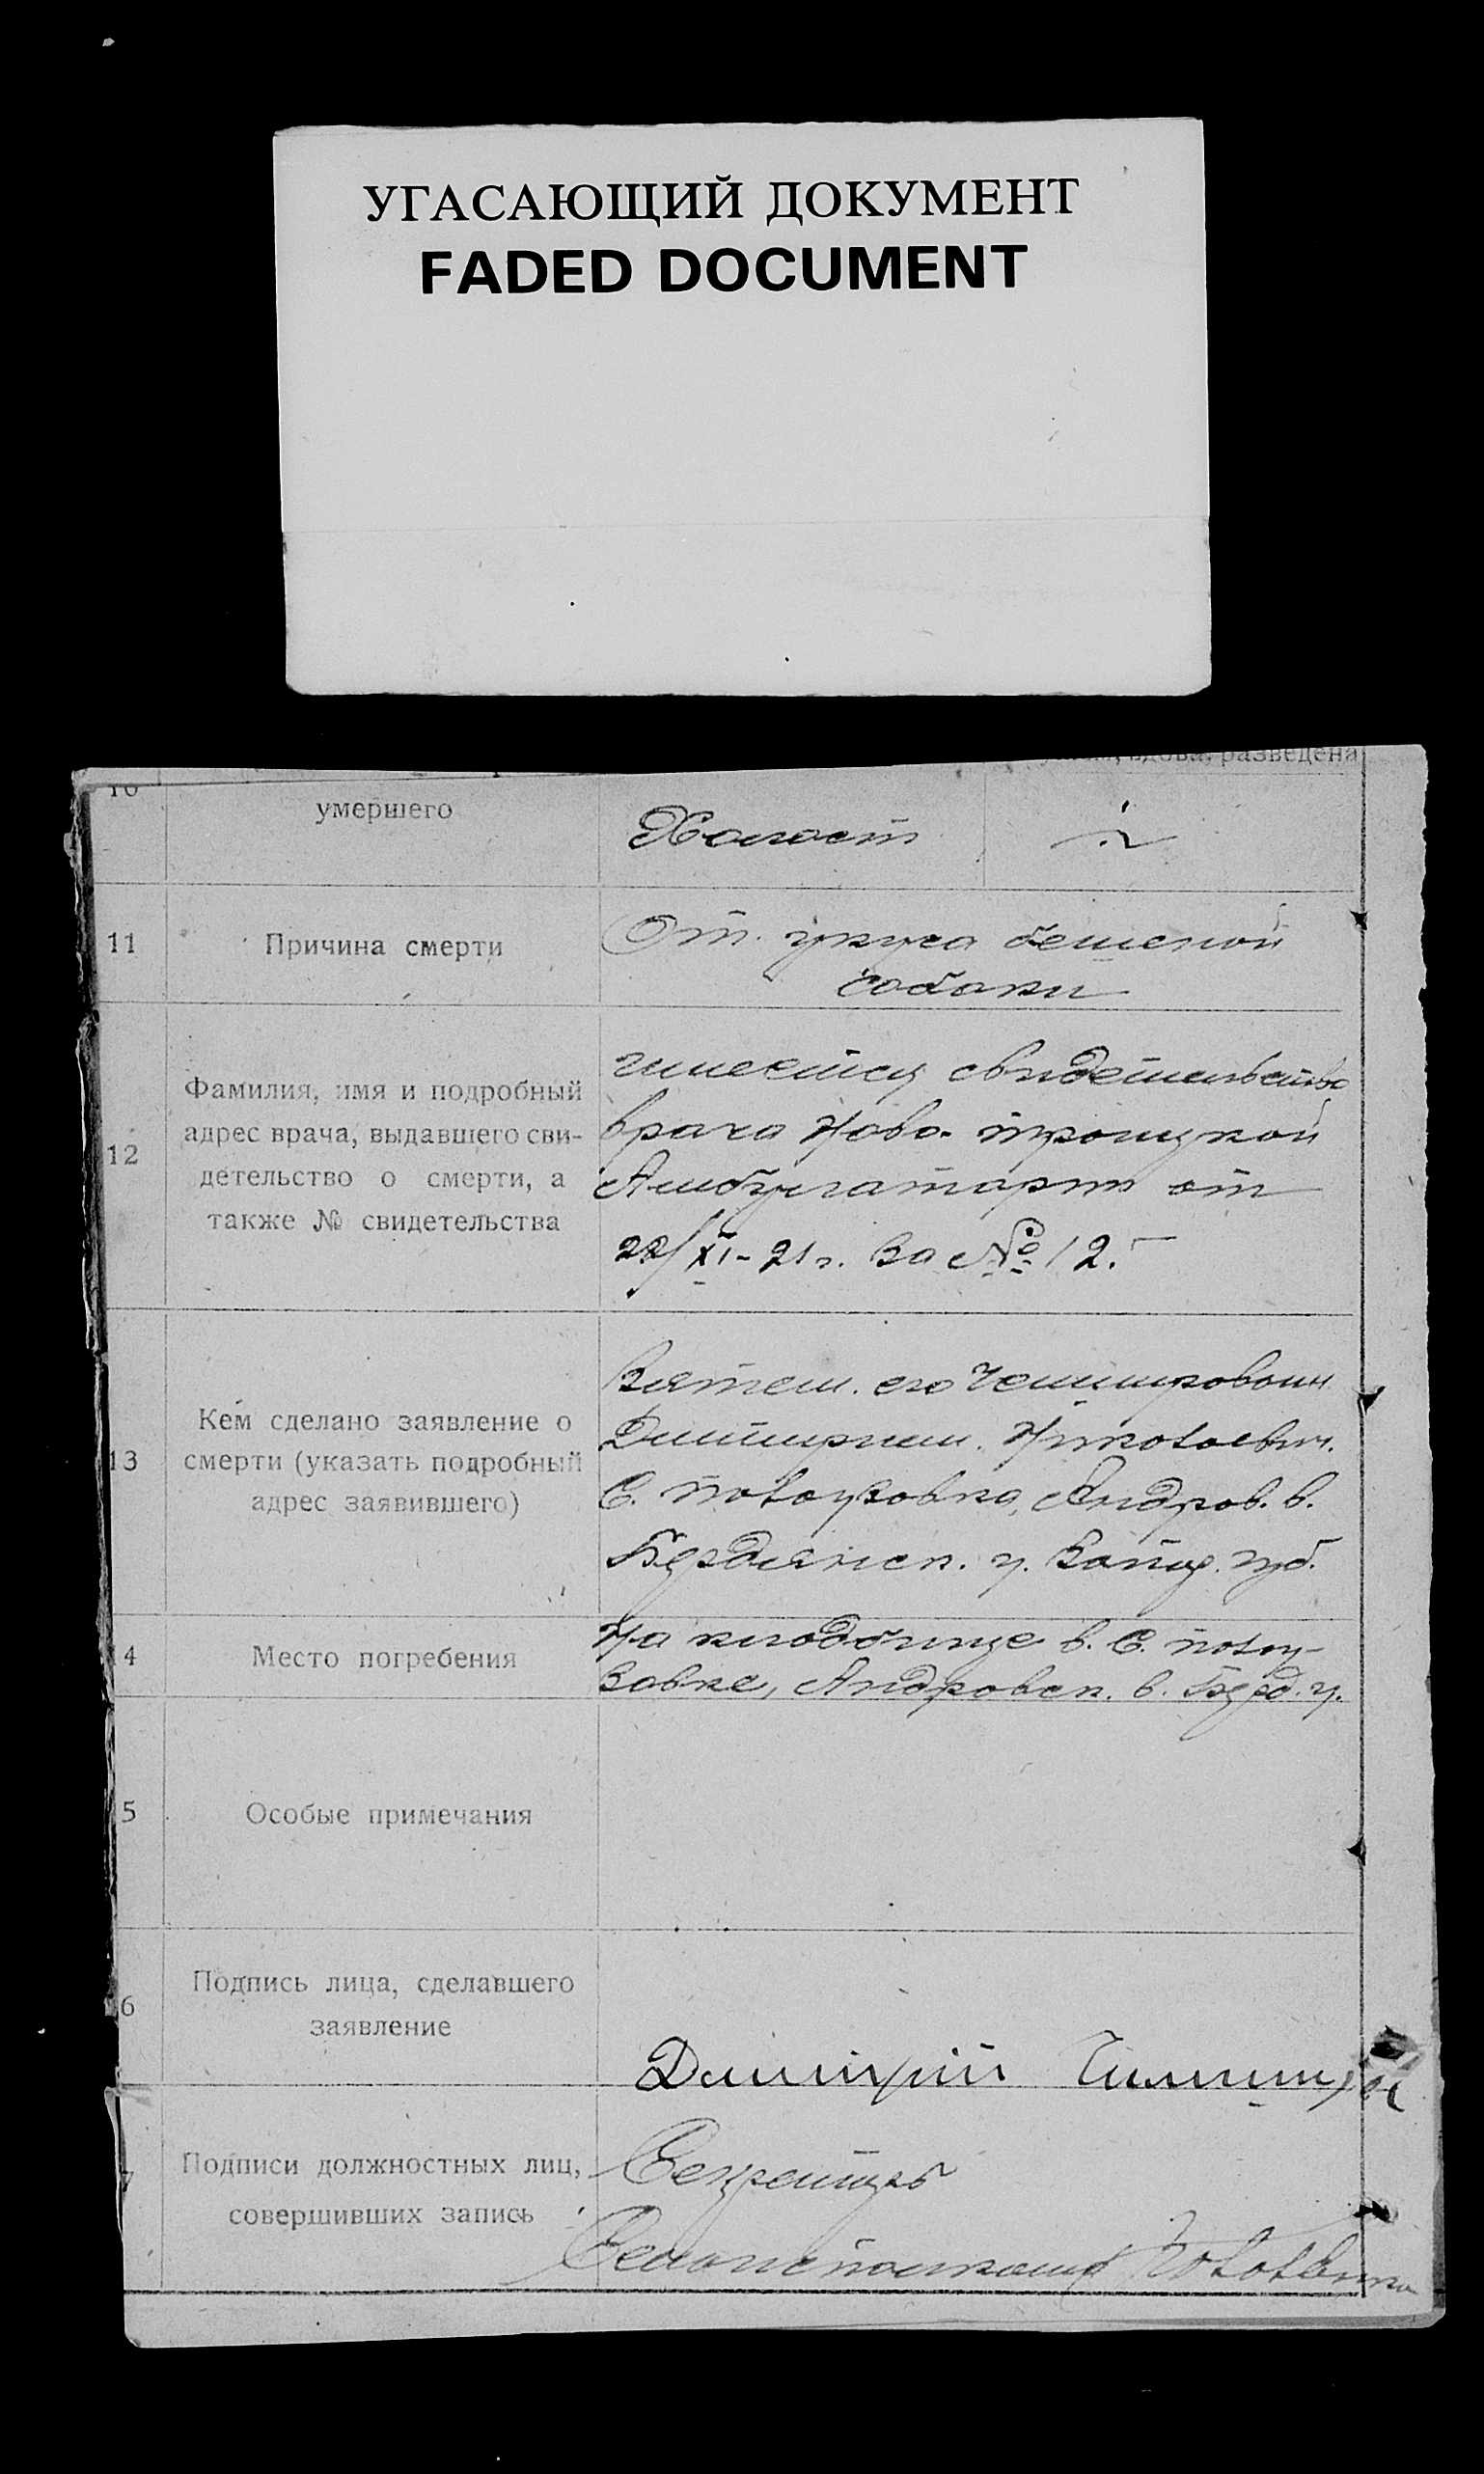 УГАСАЮЩИЙ ДОКУМЕНТ
FADED DOCUMENT
вдова, разведена
10 умершего Холост
11 Причина смерти От укуса бешеной
собаки
12 Фамилия, имя и подробный
адрес врача, выдавшего сви-
детельство о смерти, а
также № свидетельства
имеется свидетельство
врача Ново-троицкой
Амбулатории от
22/XI-21 г. За № 12.
13 Кем сделано заявление о
смерти (указать подробный
адрес заявившего)
Зятем его
Дмитрием Николаевич.
С. Полоузовка, Андров. в.
Бердянск. у. Запор. губ.
4 Место погребения
На кладбище в С. Полоу-
зовке, Андровск. в. Берд. у.
5 Особые примечания
6 Подпись лица, сделавшего
заявление
Дмитрий
7 Подписи должностных лиц,
совершивших запись
Секретарь
Сельисполкома